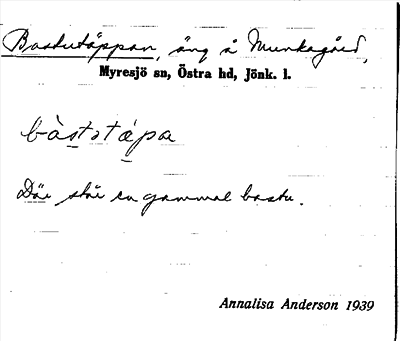 Bastutäppan, äng å Munkagård,
Myresjö sn, Östra hd, Jönk. l.
bàstətápa
Där står en gammal bastu.
Annalisa Anderson 1939